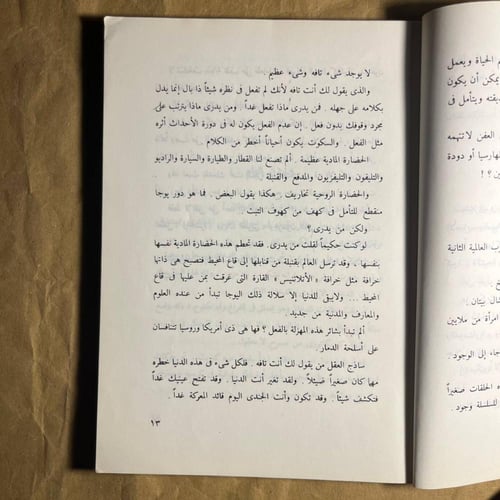 لا يوجد شىء تافه وشىء عظيم
والذى يقول لك أنت تافه لأنك لم تفعل فى نظره شيئاً ذا بال إنما يدل
بكلامه على جهله . فمن يدرى ماذا تفعل غداً . ومن يدرى ماذا يترتب على
مجرد وقوفك بدون فعل . إن عدم الفعل يكون له فى دورة الأحداث أثره
مثل الفعل . والسكوت يكون أحياناً أخطر من الكلام .
الحضارة المادية عظيمة . ألم تصنع لنا القطار والطيارة والسيارة والراديو
والتليفون والتليفزيون والمدفع والقنبلة .
والحضارة الروحية تخاريف . هكذا يقول البعض . فما هو دور يوجا
منقطع للتأمل فى كهف من كهوف التبت .
ولكن من يدرى ؟
لو كنت حكيماً لقلت من يدرى . فقد تحطم هذه الحضارة المادية نفسها
بنفسها . وقد ترسل العالم بقنبلة من قنابلها إلى قاع المحيط فتصبح هى ذاتها
خرافة مثل خرافة « الأتلانتيس » القارة التى غرقت بمن عليها فى قاع
المحيط ... ولايبقى للدنيا إلا سلالة ذلك اليوجا تبدأ من عنده العلوم
والمعارف والمدنية من جديد .
ألم تبدأ بشائر هذه المهزلة بالفعل ؟ فها هى ذى أمريكا وروسيا تتنافسان
على أسلحة الدمار .
ساذج العقل من يقول لك أنت تافه . فلكل شىء فى هذه الدنيا خطره
مهما كان صغيراً ضئيلاً . ولقد تغير أنت الدنيا . وقد تفتح عينيك غداً
فتكشف شيئاً . وقد تكون وأنت الجندى اليوم قائد المعركة غداً .
١٣
م الحياة ويعمل
يمكن أن يكون
يقته ويتأمل فى
العفن لاتتهمه
لهارسيا أو دودة
ن ؟ !
رب العالمية الثانية
ال بيتان
امرأة من ملايين
جاء إلى الوجود .
ه الحلقات صغيراً
للسلسلة وجود .